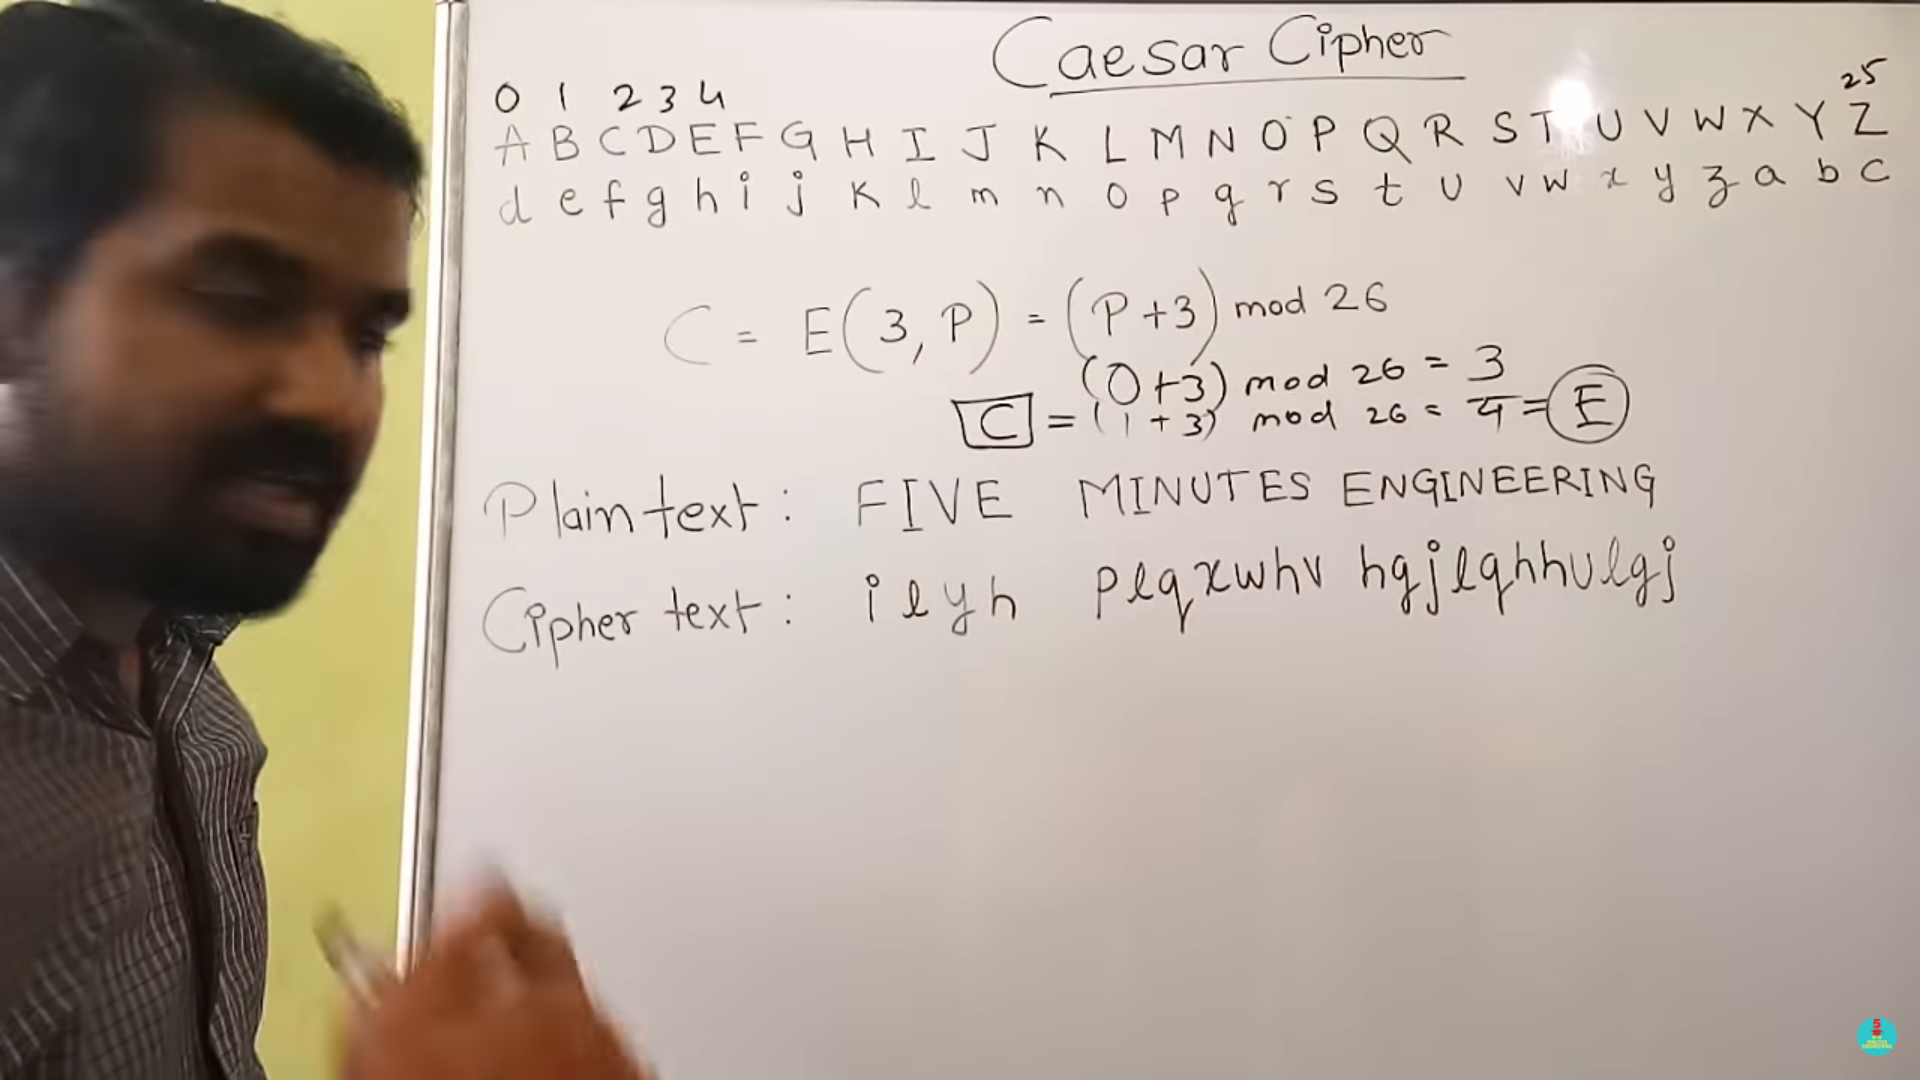 Caesar Cipher
0 1 2 3 4 25
A B C D E F G H I J K L M N O P Q R S T U V W X Y Z
d e f g h i j k l m n o p q r s t u v w x y z a b c
C = E(3, P) = (P+3) mod 26
(0+3) mod 26 = 3
C = (1+3) mod 26 = 4 = E
Plain text : FIVE MINUTES ENGINEERING
Cipher text : ilyh plqxwhv hgjlqhhulgj
5
MINUTES
ENGINEERING